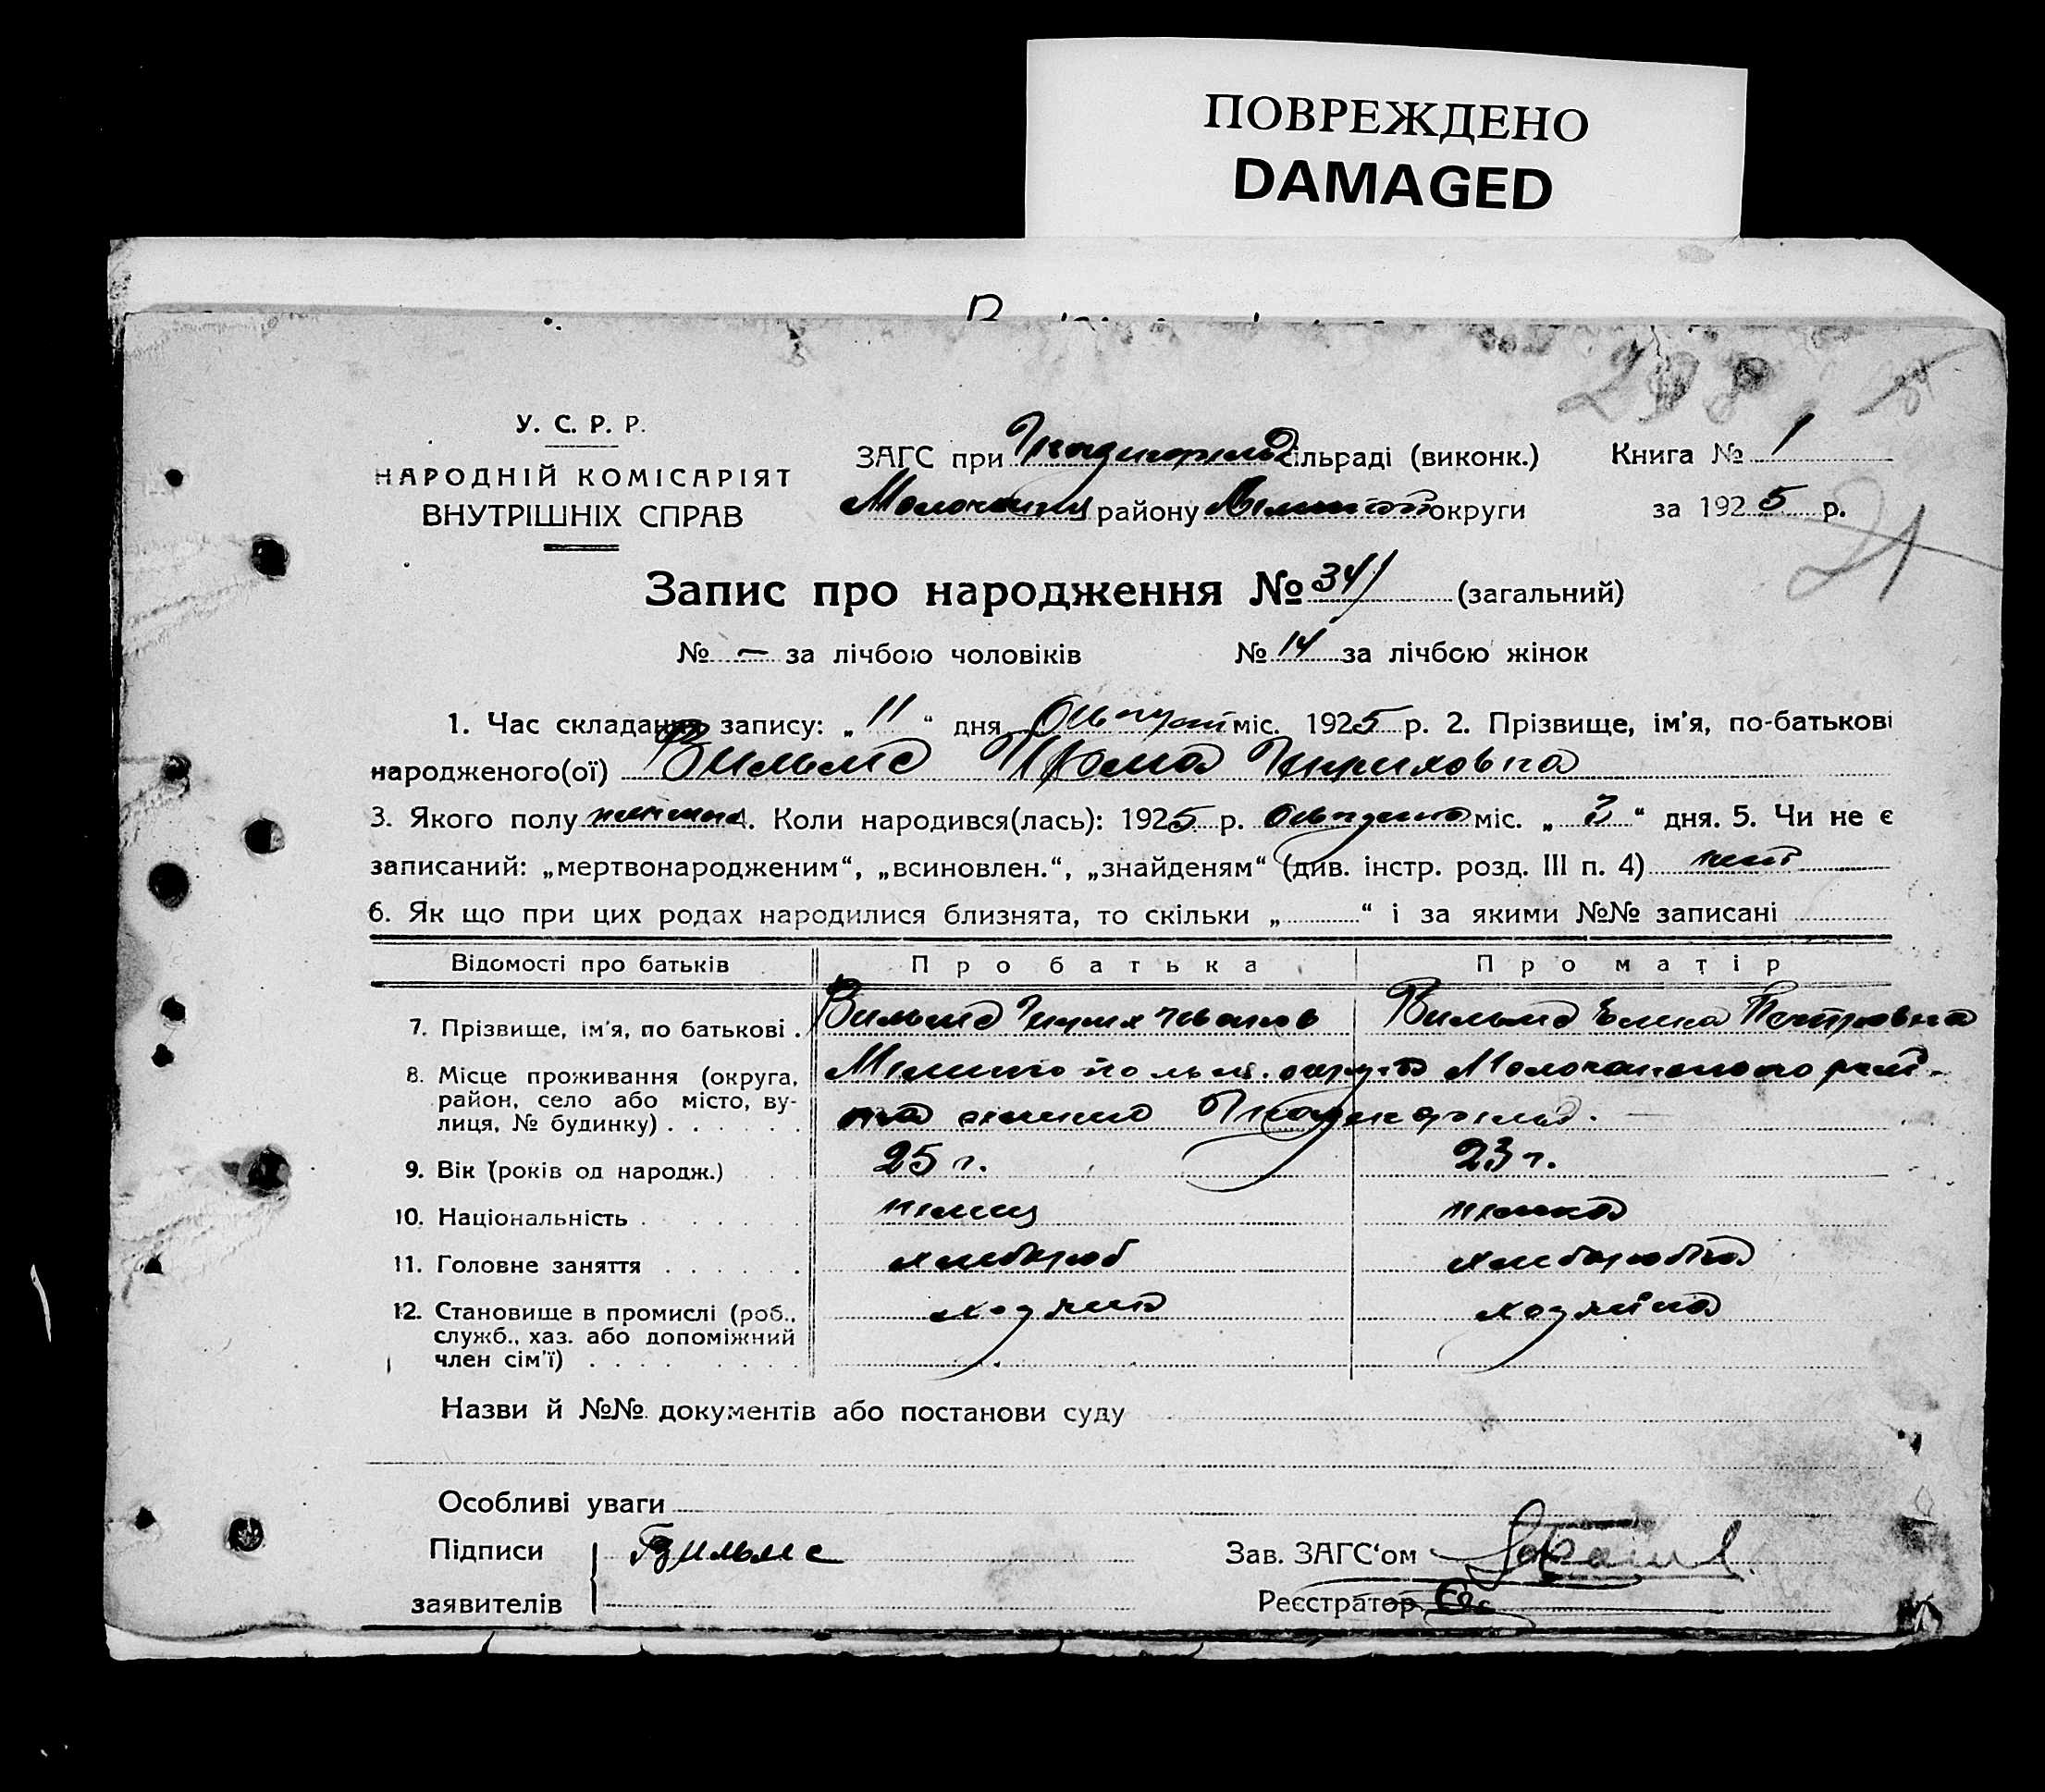 ПОВРЕЖДЕНО
DAMAGED
298
У. С. Р. Р.
НАРОДНІЙ КОМІСАРІЯТ
ВНУТРІШНІХ СПРАВ
ЗАГС при Гнаденфельд сільраді (виконк.) Книга № 1
Молочанц району Мелитоп округи за 1925 р.
21
Запис про народження № 34 (загальний)
№ – за лічбою чоловіків № 14 за лічбою жінок
1. Час складання запису: „11“ дня Август міс. 1925 р. 2. Прізвище, ім'я, по-батькові
народженого(ої) Вильмс Ирма Гириховна
3. Якого полу женщина 4. Коли народився(лась): 1925 р. Августа міс. „3“ дня. 5. Чи не є
записаний: „мертвонародженим“, „всиновлен.“, „знайденям“ (див. інстр. розд. III п. 4) нет
6. Як що при цих родах народилися близнята, то скільки „ “ і за якими №№ записані
Відомості про батьків Про батька Про матір
7. Прізвище, ім'я, по батькові . Вильмс Гирих Иванов Вильмс Елена Петровна
8. Місце проживання (округа, район, село або місто, вулиця, № будинку) . . . . . . Мелитопольск. округа Молочанского рай-
на селение Гнаденфельд.
9. Вік (років од народж.) . . . 25 г. 23 г.
10. Національність . . . . . немец немка
11. Головне заняття . . . . . . хлебороб хлеборобка
12. Становище в промислі (роб., служб., хаз. або допоміжний член сім'ї) . . . . . . . хозяин хозяйка
Назви й №№ документів або постанови суду
Особливі уваги
Підписи Г Вильмс Зав. ЗАГС‘ом
заявителів Реєстратор